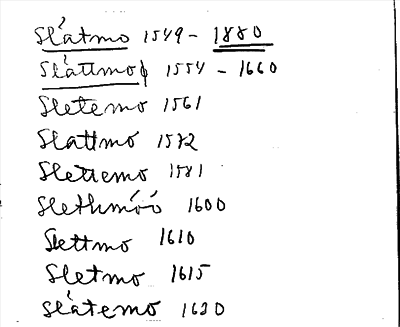 Slátmo 1549 - 1880
Sláttmoϕ 1554 - 1660
Sletemo 1561
Slattmo 1572
Slettemo 1581
Slethmóó 1600
Slettmo 1610
Sletmo 1615
Slátemo 1620